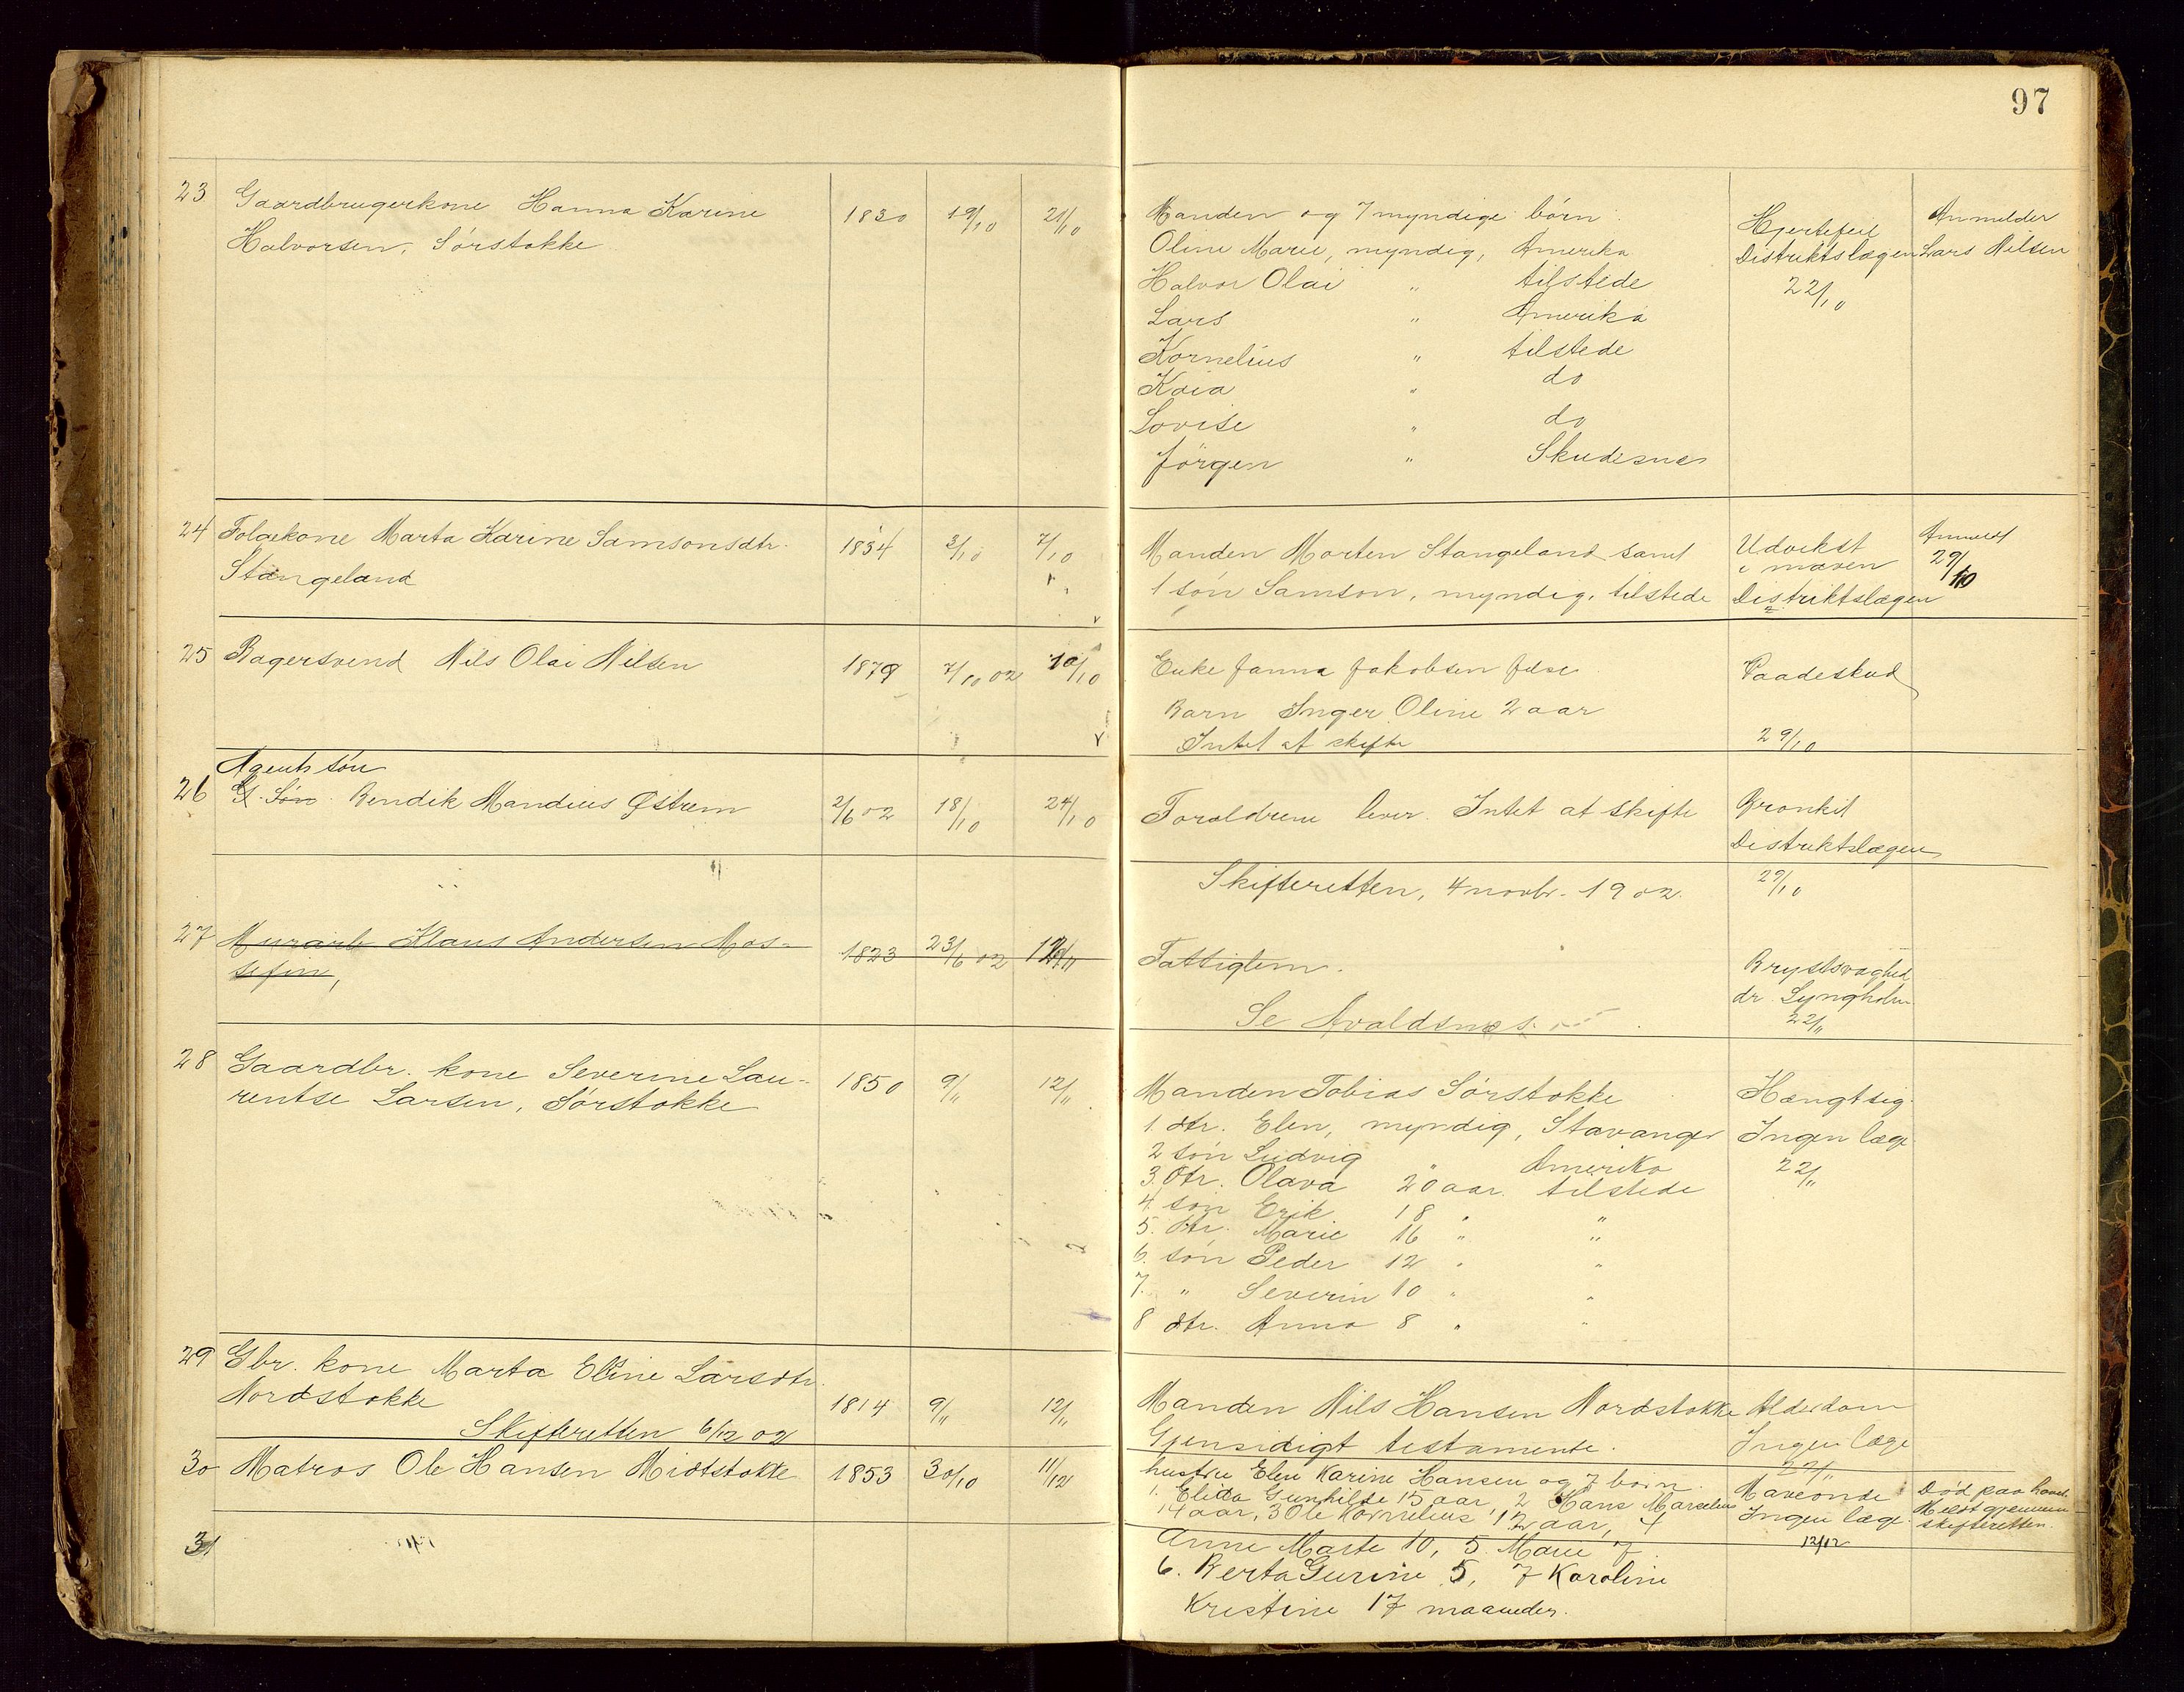 97
23 Gaardbrugerkone Hanna Karine 1830 19/10 21/10
Halvorsen, Sørstokke
Manden og 7 myndige børn. Hjertefeil Anmelder
Oline Marie, myndig, Amerika Distriktslægen Lars Nilsen
Halvor Olai " tilstede 22/10
Lars " Amerika
Kornelius " tilstede
Kaia " do
Lovise " do
Jørgen " Skudesnes
24 Folgekone Marta Karine Samsonsdtr. 1834 3/10 7/10
Stangeland
Manden Morten Stangeland samt Udvekst Anmeldt
1 søn Samson, myndig, tilstede i maven 29/10
Distriktslægen
25 Bagersvend Nils Olai Nilsen 1879 7/10 02 10/10
Enke Janna Jakobsen Vaadeskud
Barn Inger Oline 2 aar
Intet at skifte 29/10
Agents søn
26 G. Søn. Bendik Mandius Østrem 2/6 02 18/10 24/10
Forældrene lever. Intet at skifte Bronkit
Distriktslægen
Skifteretten, 4 novbr. 1902. 29/10
27 Murarb Klaus Andersen Mos- 1823 23/6 02
sefin,
Fattiglem. Brystsvaghed
dr. Lyngholm
Se Avaldsnes. 22/11
28 Gaardbr. kone Severine Lau- 1850 9/11 12/11
rentse Larsen, Sørstokke
Manden Tobias Sørstokke Hængt sig.
1. dtr. Elen, myndig, Stavanger Ingen læge
2 søn Ludvig " Amerika 22/11
3. Dtr. Olava 20 aar. tilstede
4. søn Erik 18 " "
5. dtr. Marie 16 " "
6. søn Peder 12 " "
7. " Severin 10 " "
8 dtr. Anna 8 " "
29 Gbr. kone Marta Eline Larsdtr. 1814 9/11 12/11
Nordstokke
Skifteretten 6/12 02
Manden Nils Hansen Nordstokke Alderdom
Gjensidigt testamente. Ingen læge
22/11
30 Matros Ole Hansen Midtstokke 1853 30/10 11/12
hustru Elen Karine Hansen og 7 børn. Maveonde Død paa havet
1. Elida Gunhilde 15 aar, 2 Hans Marselius Ingen læge. Meldt gjennem
14 aar, 3 Ole Kornelius 12 aar, 4 skifteretten.
Anne Marte 10, 5. Marie 7 12/12
6. Berta Gurine 5, 7 Karoline
Kristine 17 maaneder.
31